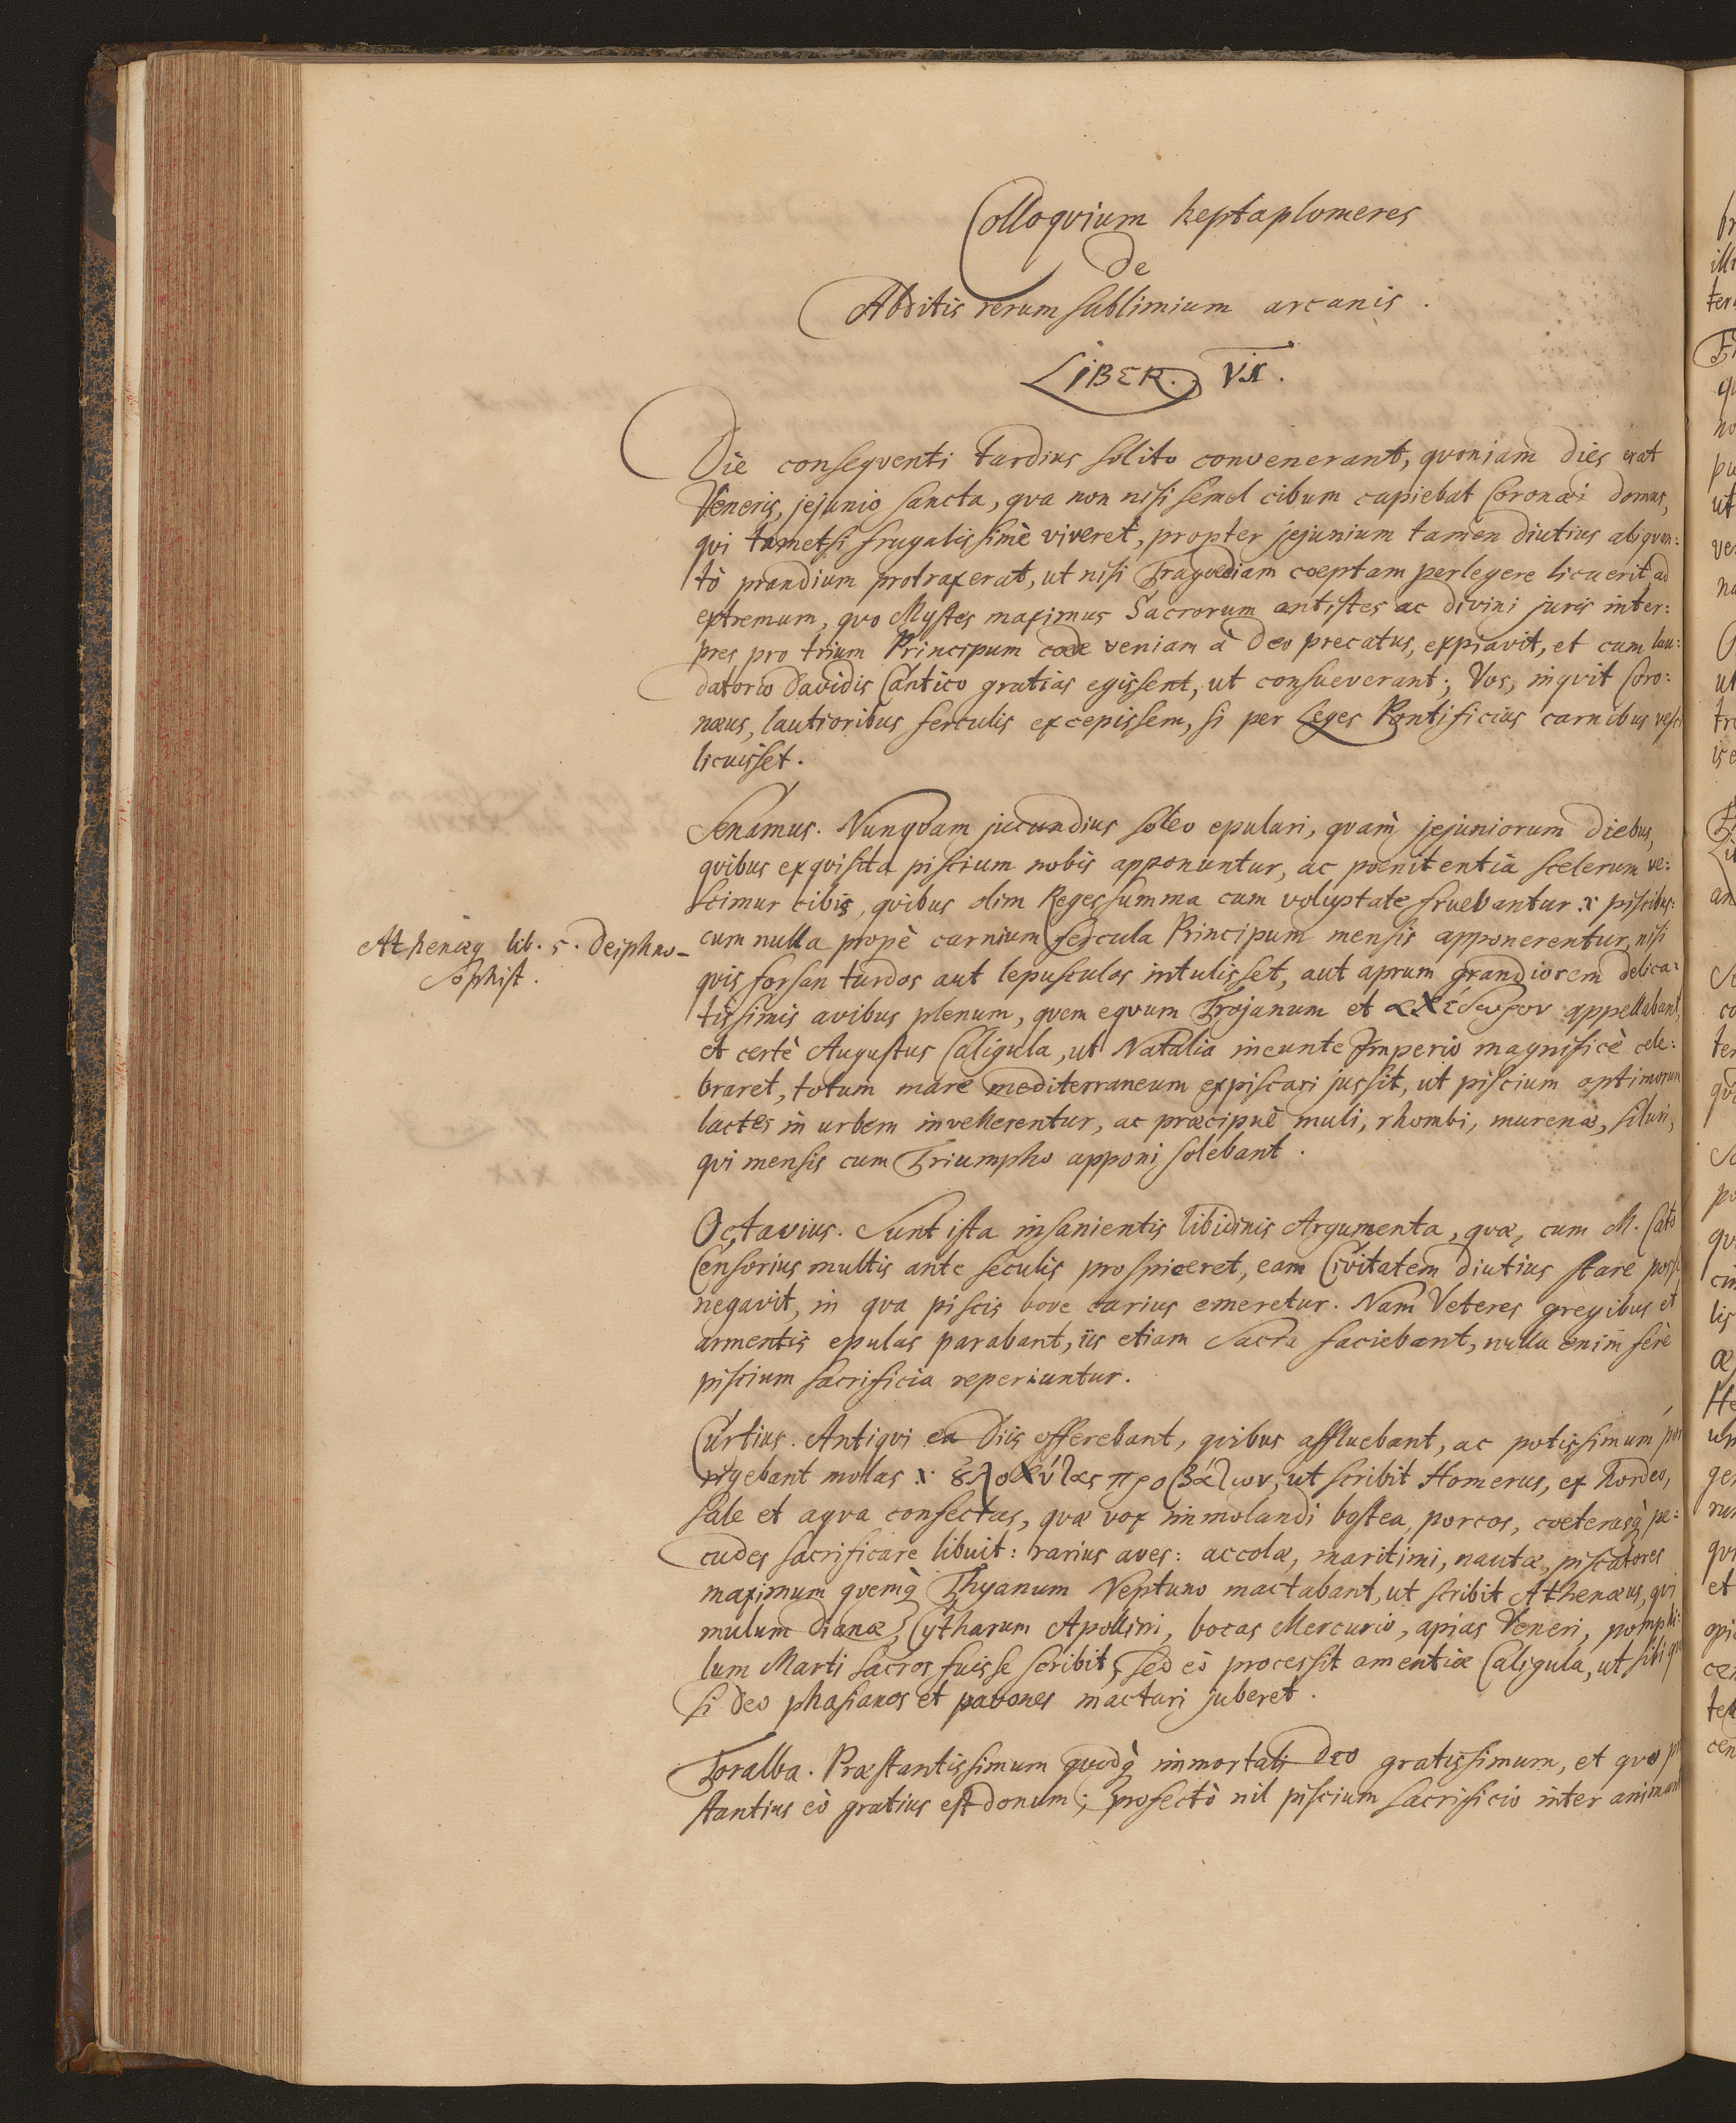 Colloqvium heptaplomeres
de
Abditis rerum sublimium arcanis.
LIBER. VI.
Die conseqventi tardius solito convenerant, qvoniam dies erat
Veneris, jejunio sancta, qva non nisi semel cibum capiebat Coronæi domus,
qvi tametsi frugalissimè viveret, propter jejunium tamen diutius aliqvan:
tò prandium protraxerat, ut nisi Tragoediam coeptam perlegere licuerit ad
extremum, qvo Mystes maximus Sacrorum antistes ac divini juris inter:
pres pro trium Principum coede veniam à Deo precatus, expiavit, et cum lau:
datorio Davidis Cantico gratias egissent, ut consueverant; Vos, inqvit Coro:
næus, lautioribus ferculis excepissem, si per Leges Pontificias carnibus vesci
licuisset.
Senamus. Nunqvam jucundius soleo epulari, qvam jejuniorum diebus,
qvibus exqvisita piscium nobis apponuntur, ac poenitentia scelerum ve:
scimur cibis, qvibus olim Reges summa cum voluptate fruebantur .x piscibus:
Athenæg lib. 5. Deiphno-
Sophist.
cum nulla propè carnium fercula Principum mensis apponerentur, nisi
qvis forsan turdos aut lepusculos intulisset, aut aprum grandiorem delica:
tissimis avibus plenum, qvem eqvum Trojanum et appellabant,
et certè Augustus Caligula, ut Natalia ineunte Imperio magnificè cele:
braret, totum mare mediterraneum expiscari jussit, ut piscium optimorum
lactes in urbem inveherentur, ac præcipuè muli, rhombi, murenæ, siluri,
qvi mensis cum Triumpho apponi solebant.
Octavius. Sunt ista insanientis libidinis Argumenta, qvæ, cum M. Cato
Censorius multis ante seculis prospiceret, eam Civitatem diutius stare posse
negavit, in qva piscis bove carius emeretur. Nam Veteres gregibus et
armentis epulas parabant, iis etiam Sacra faciebant, nulla enim ferè
piscium sacrificia reperiuntur.
Curtius. Antiqvi ea Diis offerebant, qvibus affluebant, ac potissimum por
rigebant molas x. προβάλων, ut scribit Homerus, ex hordeo,
sale et aqva confectas, qvæ vox immolandi bostea, porcos, coeterasq; pe:
cudes sacrificare libuit: rarius aves: accolæ, maritimi, nautæ, piscatores
maximum qvemq; Thyanum Neptuno mactabant, ut scribit Athenæus, qvi
mulum Dianæ, Cytharum Apollini, bocas Mercurio, apias Veneri, pompili:
lum Marti sacros fuisse scribit, sed eò processit amentiæ Caligula, ut sibi qva
si Deo phasianos et pavones mactari juberet.
Toralba. Præstantissimum quodq; immortali Deo gratissimum, et qvo
stantius eò gratius est donum; profectò nil piscium sacrificio inter animant